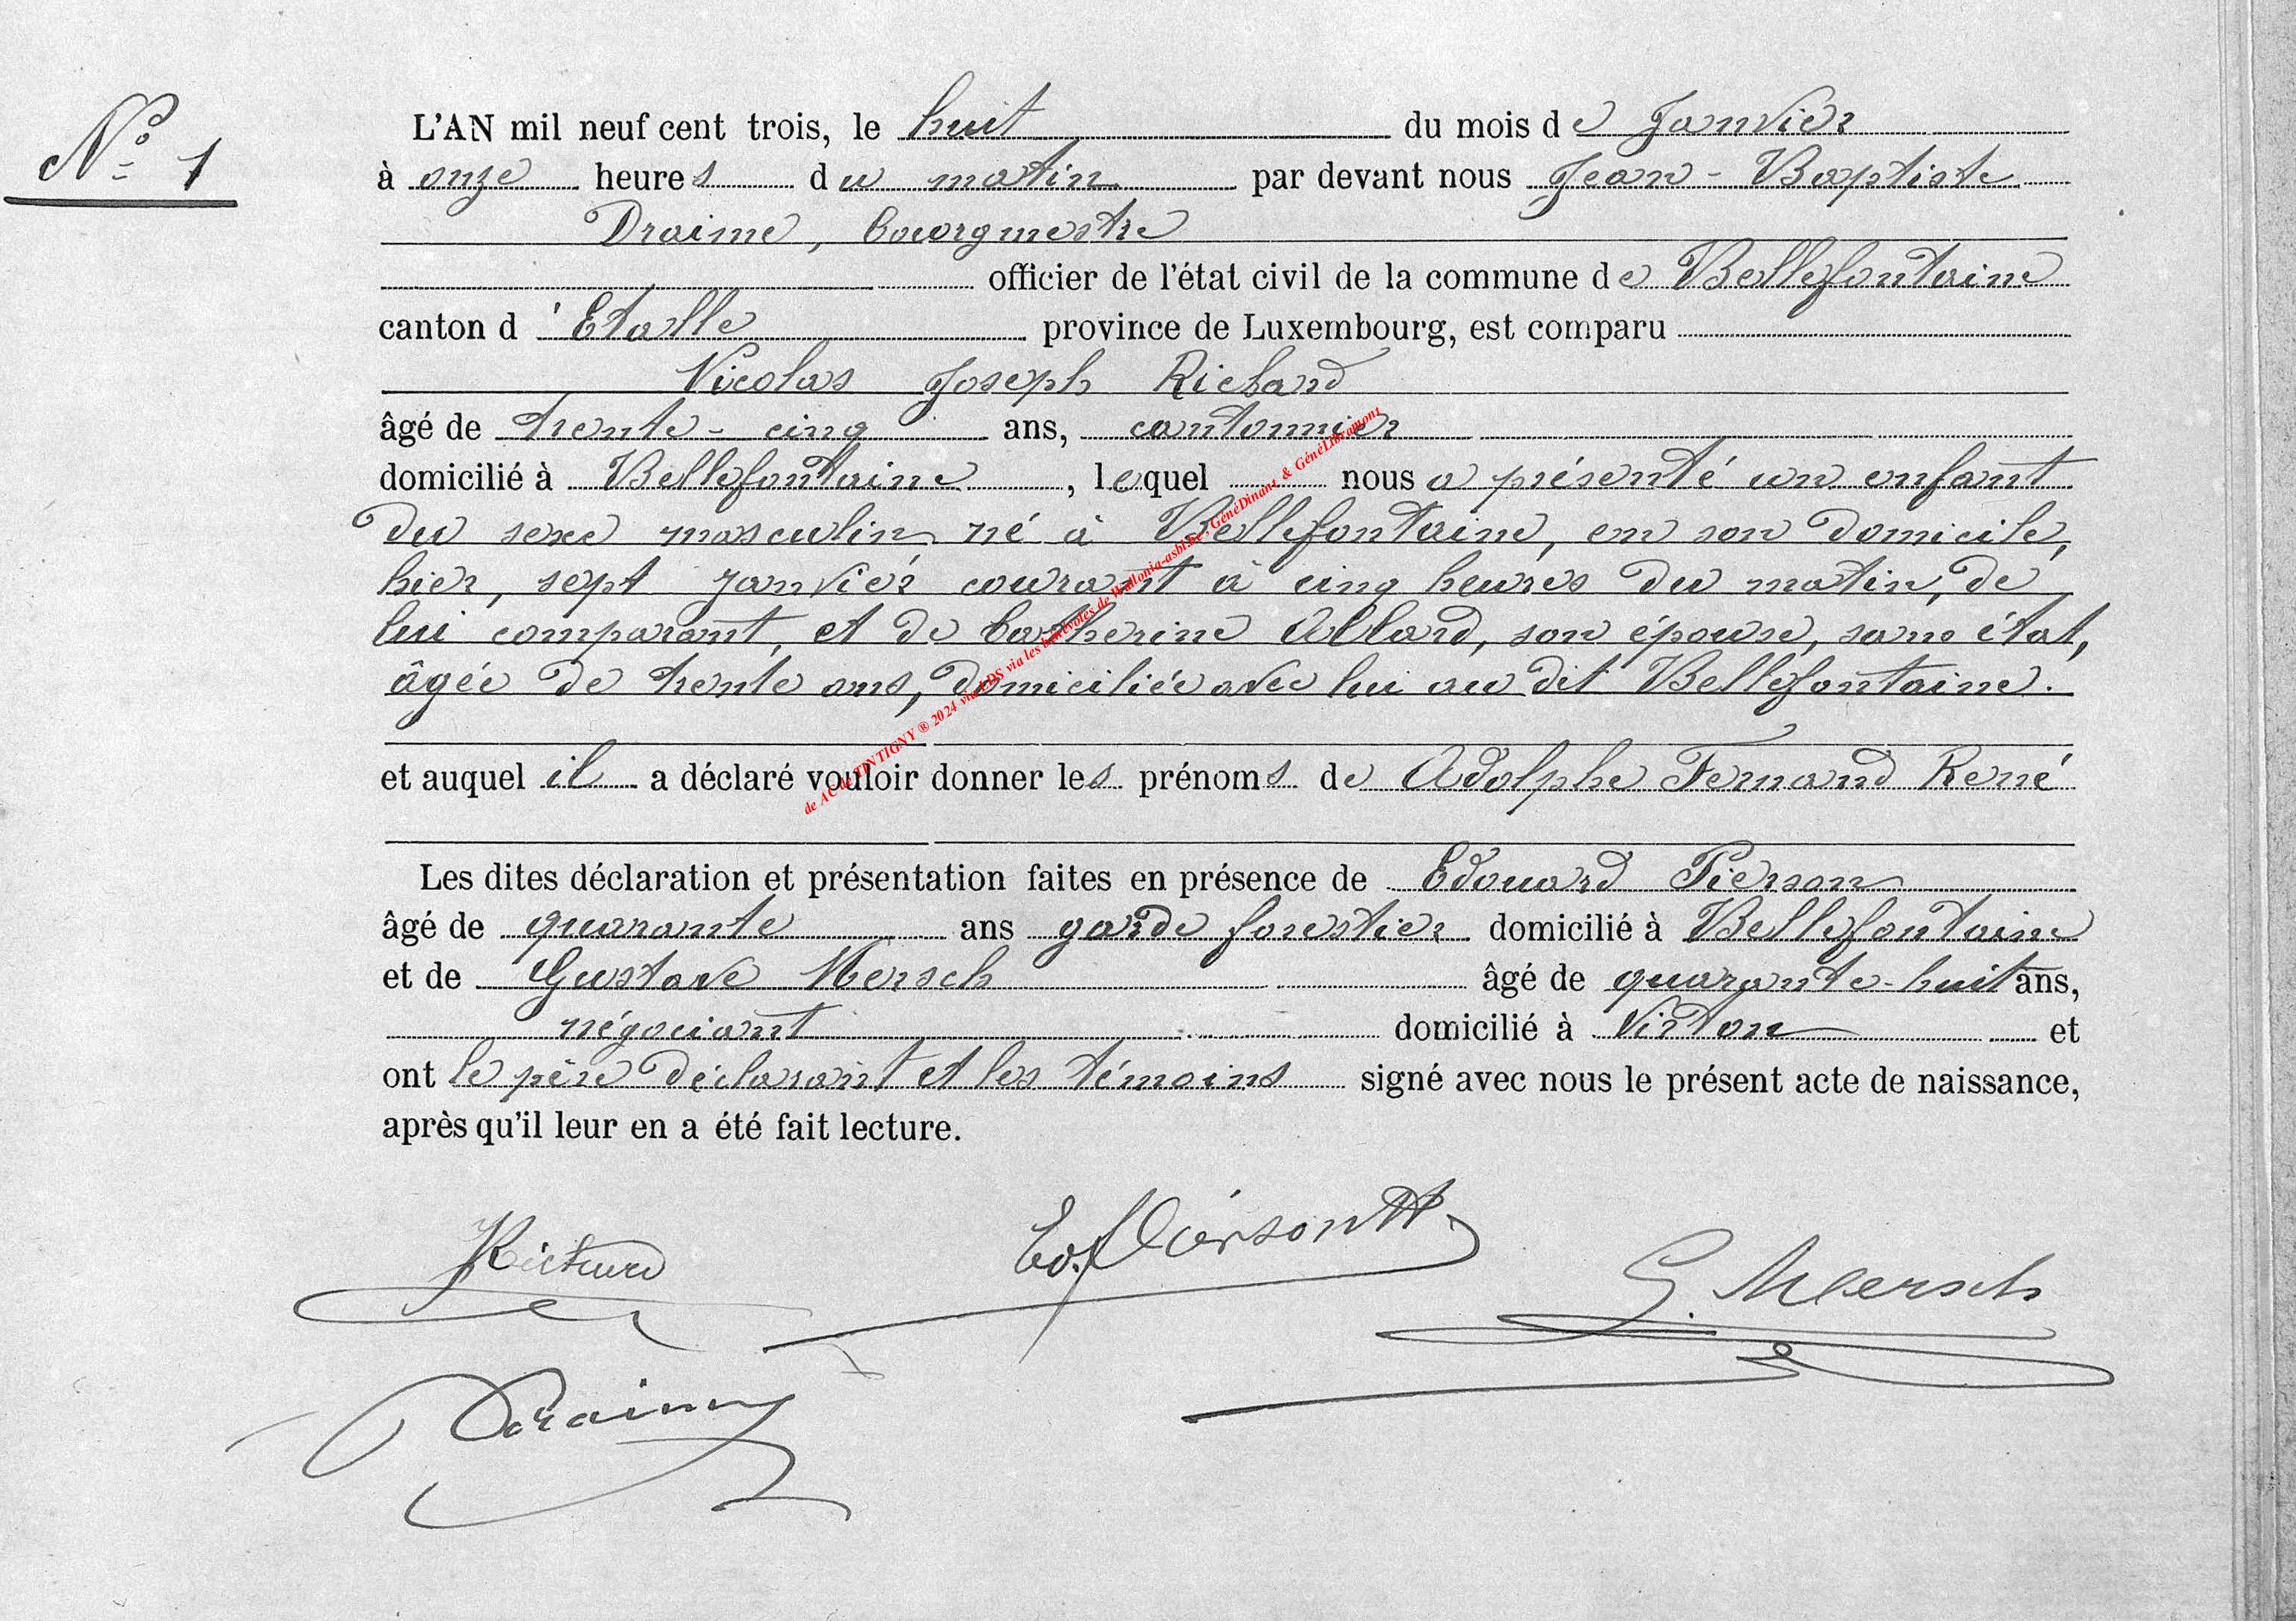 N° 1
L'AN mil neuf cent trois, le huit du mois de Janvier
à onze heures du matin par devant nous Jean-Baptiste
Draime, bourgmestre
officier de l'état civil de la commune de Bellefontaine
canton d'Etalle province de Luxembourg, est comparu
Nicolas Joseph Richard
âgé de trente-cinq ans, cantonnier
domicilié à Bellefontaine, lequel nous a présenté un enfant
du sexe masculin né à Bellefontaine, en son domicile,
hier, sept janvier courant à cinq heures du matin, de
lui comparant, et de Catherine Allard, son épouse, sans état,
âgée de trente ans, domiciliée avec lui au dit Bellefontaine.
et auquel il a déclaré vouloir donner les prénoms de Adolphe Fernand René
Les dites déclaration et présentation faites en présence de Edouard Pierson
âgé de quarante ans garde forestier domicilié à Bellefontaine
et de Gustave Mersch âgé de quarante-huit ans,
négociant domicilié à Virton et
ont le père déclarant et les témoins signé avec nous le présent acte de naissance,
après qu'il leur en a été fait lecture.
de AC de TINTIGNY ® 2024 via FDS via les bénévoles de Wallonia-asbl.be, GénéDinant & GénéLibramont
Richard
Ed. Pierson
G. Mersch
Draime